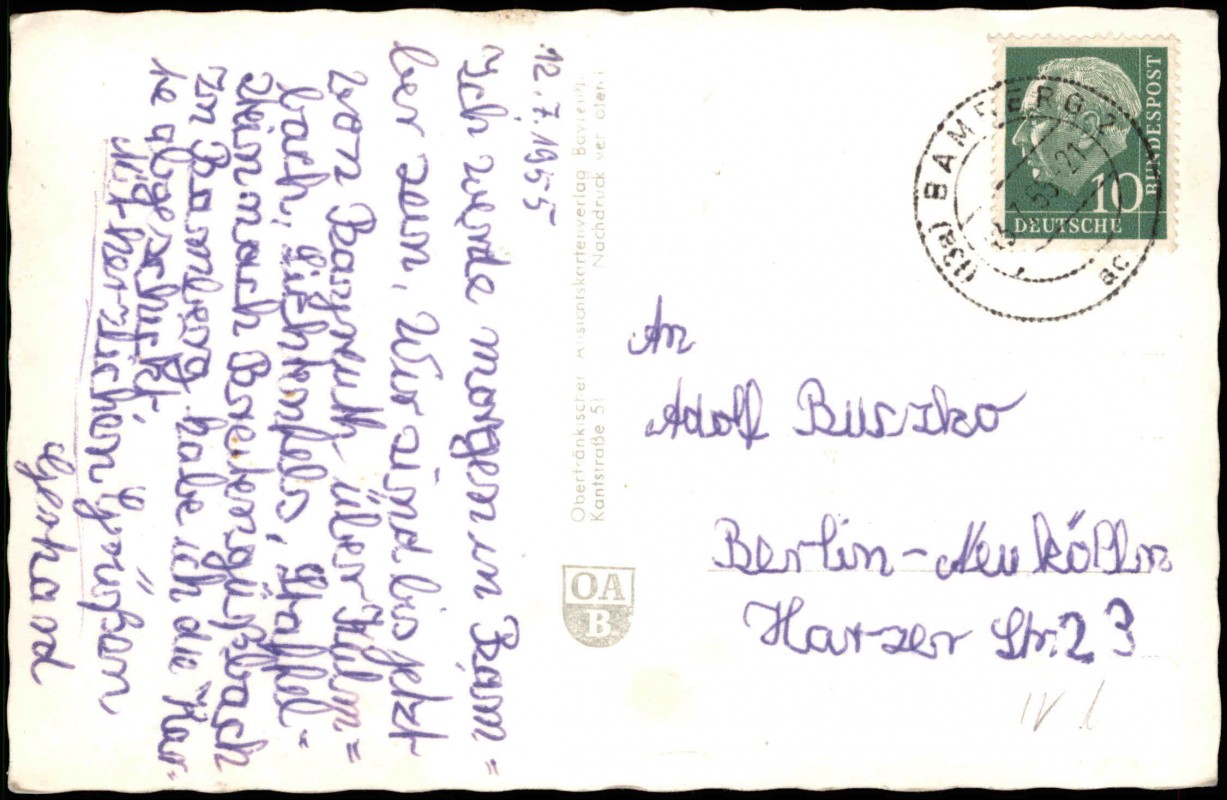 12.7.1955
Ich werde morgen in Bam=
ber sein. Wir sind bis jetzt
von Bayreuth über Kulm=
bach, Lichtenfels, Staffel=
stein nach Breitengüßbach
In Bamberg habe ich die Kar=
te abgeschickt
Mit herzlichen Grüßen
Gerhard
Oberfränkischer Ansichtskartenverlag Bayreuth,
Kantstraße 5 Nachdruck verboten
OA
B
DEUTSCHE
BUNDESPOST
10
(13a) BAMBERG 2
ac
An
Adolf Buszko
Berlin-Neukölln
Harzer Str. 23